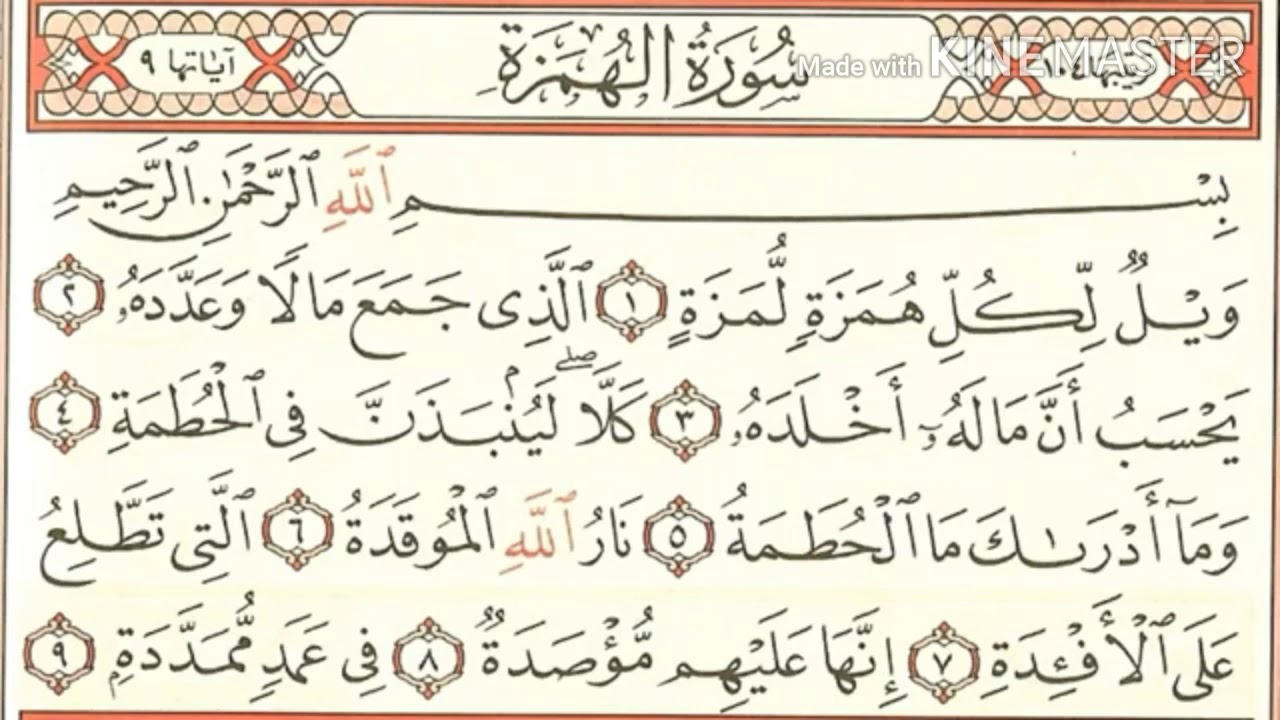 ترتيبها ١٠٤ سُورَةُ الهُمَزَةِ آياتها ٩
Made with KINEMASTER
بِسْمِ ٱللَّهِ ٱلرَّحْمَٰنِ ٱلرَّحِيمِ
وَيْلٌ لِّكُلِّ هُمَزَةٍ لُّمَزَةٍ ١ ٱلَّذِى جَمَعَ مَالًا وَعَدَّدَهُۥ ٢
يَحْسَبُ أَنَّ مَالَهُۥٓ أَخْلَدَهُۥ ٣ كَلَّا ۖ لَيُنۢبَذَنَّ فِى ٱلْحُطَمَةِ ٤
وَمَآ أَدْرَىٰكَ مَا ٱلْحُطَمَةُ ٥ نَارُ ٱللَّهِ ٱلْمُوقَدَةُ ٦ ٱلَّتِى تَطَّلِعُ
عَلَى ٱلْأَفْـِٔدَةِ ٧ إِنَّهَا عَلَيْهِم مُّؤْصَدَةٌ ٨ فِى عَمَدٍ مُّمَدَّدَةٍۭ ٩